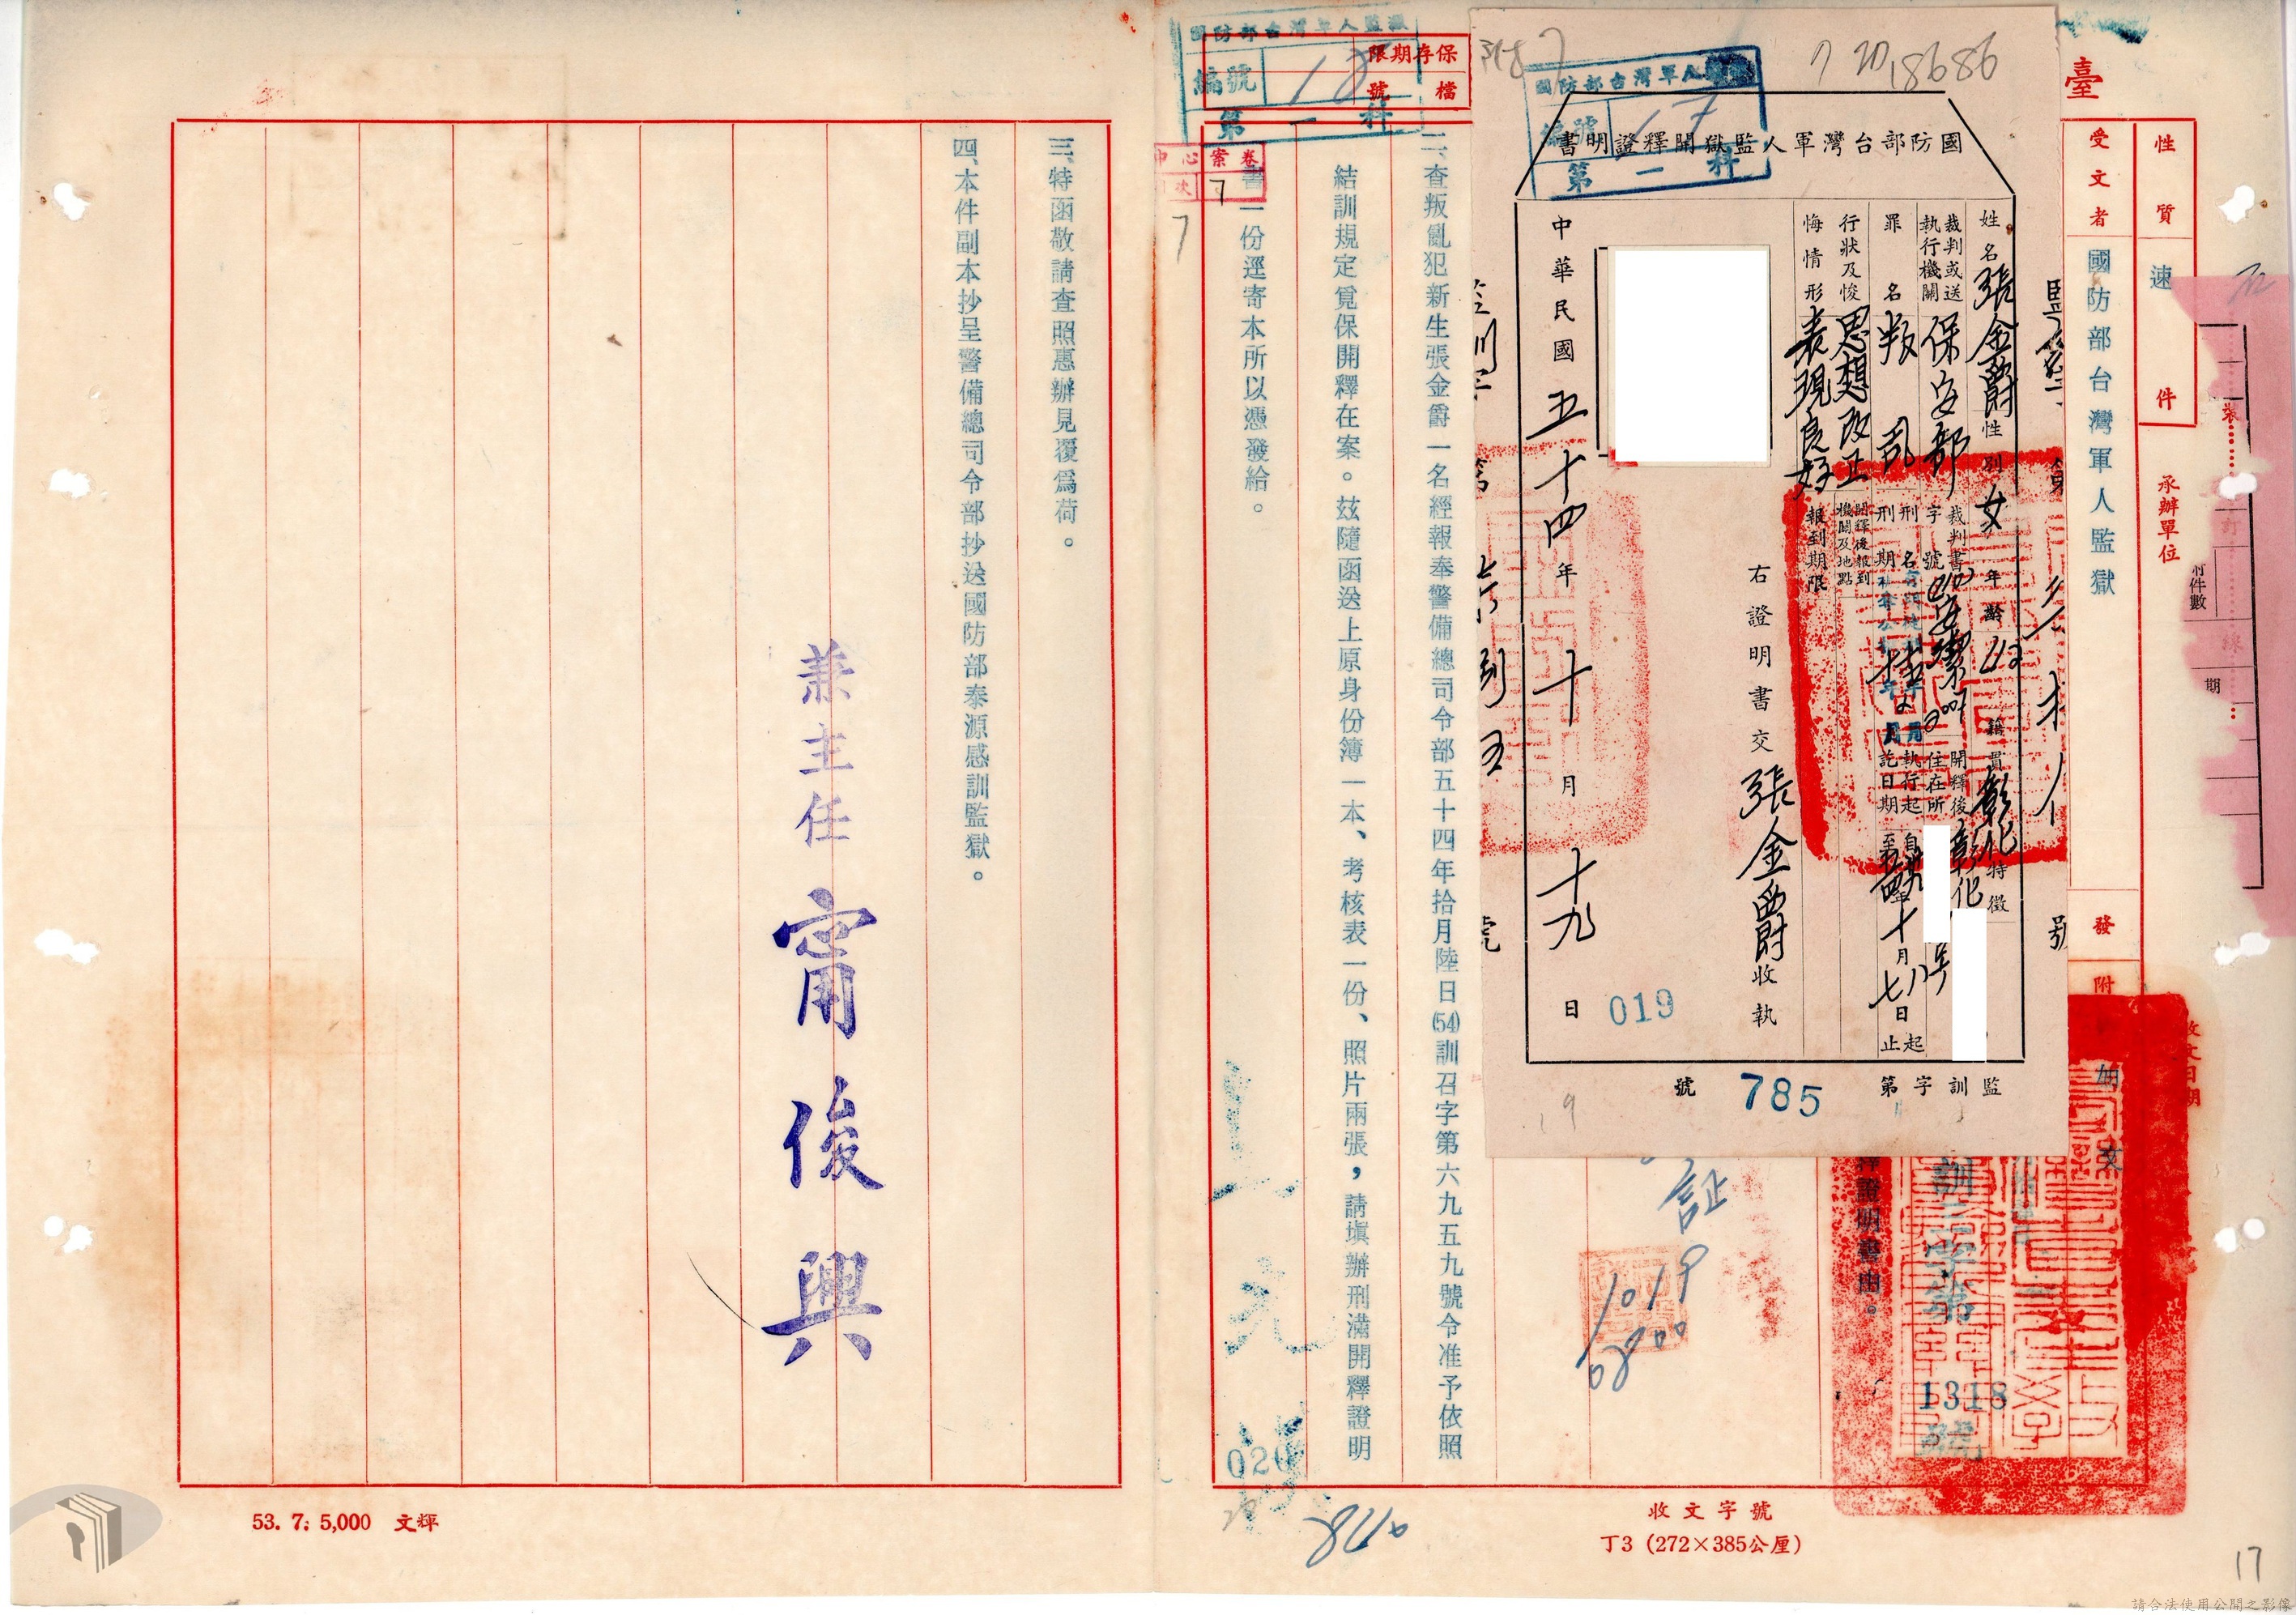 臺
性質
速
件
受文者
國防部台灣軍人監獄
承辦單位
發
附
附件數
期
裝
訂
線
7 20 18686
國防部台灣軍人監獄
編號
17
第一科
國防部台灣軍人監獄開釋證明書
姓名
張金爵
性別
女
年齡
籍貫
彰化
特徵
裁判或送執行機關
保安部
裁判書字號
開釋後住在所
彰化
罪名
叛亂
刑名
刑期
執行起訖日期
自
至
十月七日
起
止
行狀及悛悔情形
思想改正
表現良好
開釋後報到機關及地點
報到期限
右證明書交
張金爵
收執
中華民國五十四年十月十九日
019
監訓字第
785
號
證明書由。
訓
字第
1318
號
証
1019
0800
國防部台灣軍人監獄
編號
18
第一科
保存期限
檔號
二、查叛亂犯新生張金爵一名經報奉警備總司令部五十四年拾月陸日(54)訓召字第六九五九號令准予依照
結訓規定覓保開釋在案。玆隨函送上原身份簿一本、考核表一份、照片兩張,請塡辦刑滿開釋證明
書一份逕寄本所以憑發給。
7
7
020
收文字號
丁3 (272×385公厘)
三、特函敬請查照惠辦見覆爲荷。
四、本件副本抄呈警備總司令部抄送國防部泰源感訓監獄。
兼主任 甯俊興
53. 7. 5,000 文輝
17
請合法使用公開之影像